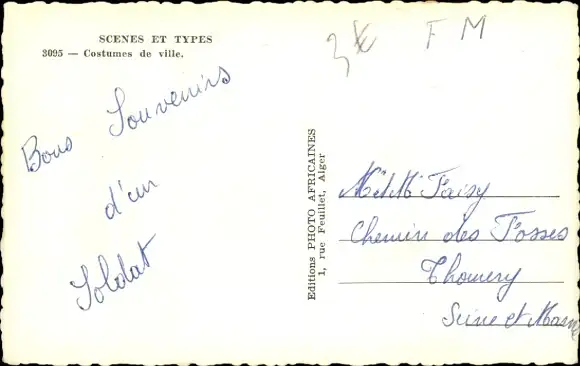 SCENES ET TYPES
3095 — Costumes de ville.
F M
Bons Souvenirs
d'un
Soldat
Editions PHOTO AFRICAINES
1, rue Feuillet, Alger
M et M Faisy
Chemin des Fosses
Thomery
Seine et Marne